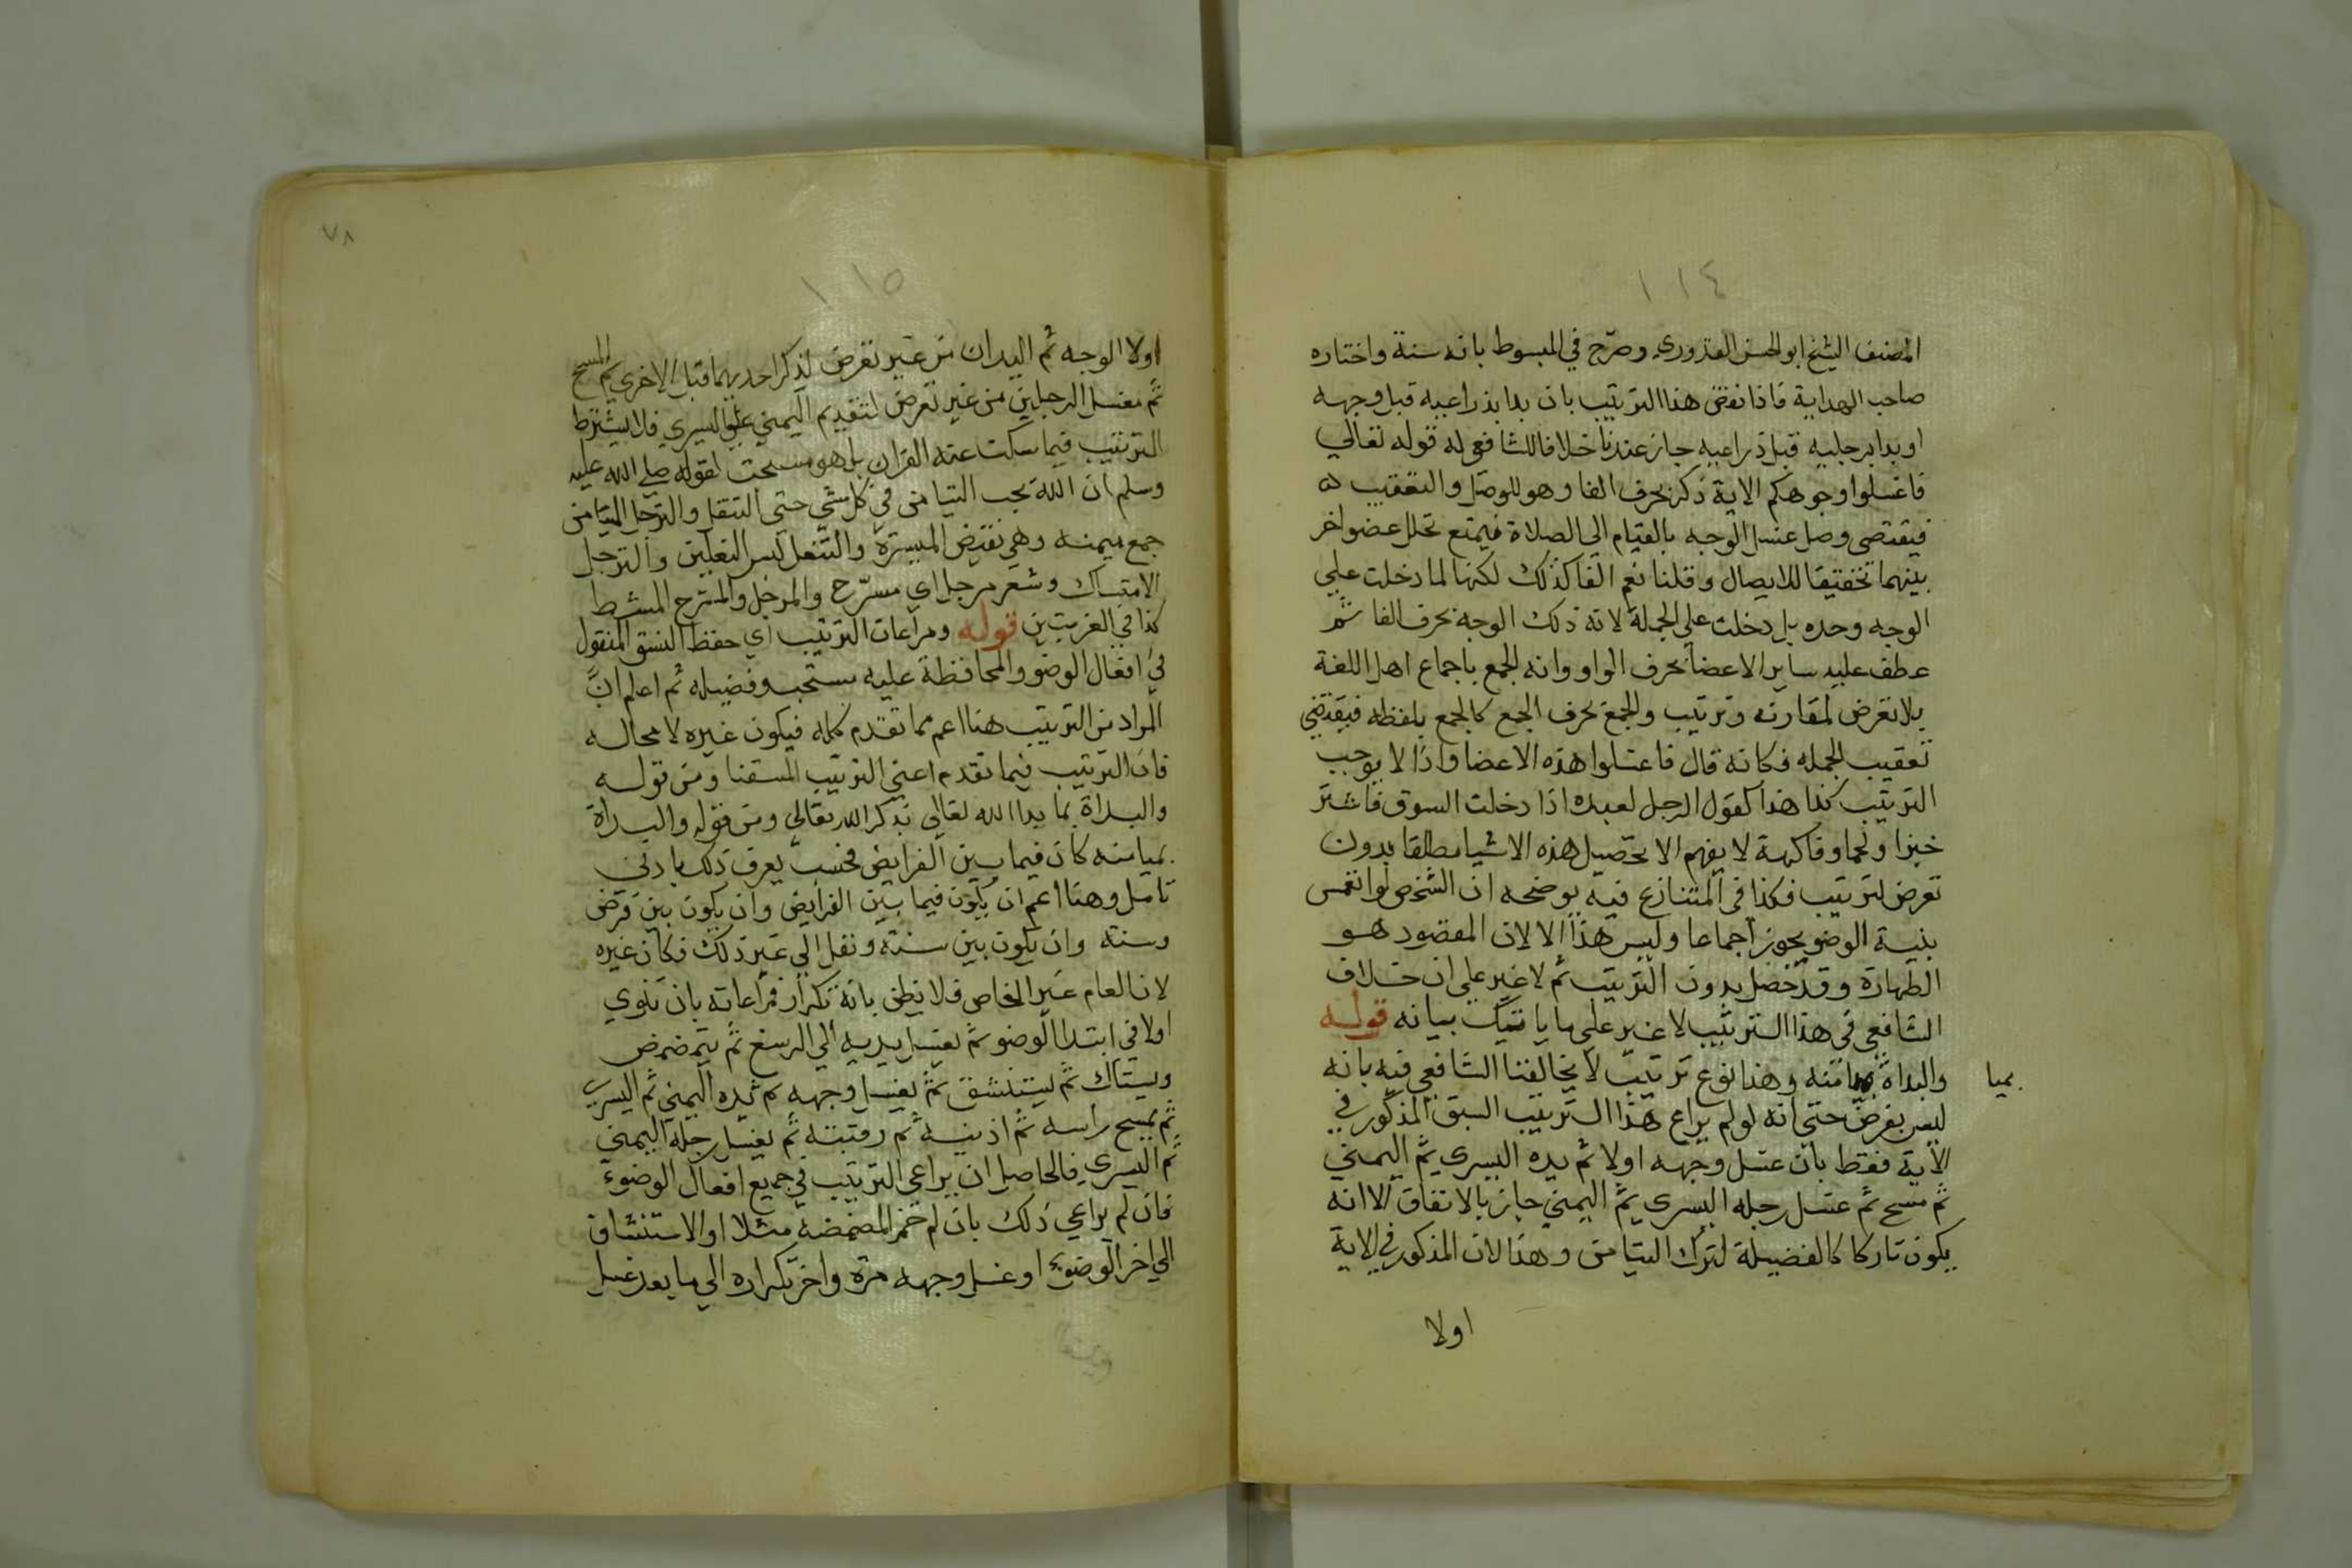 ١١٤
المصنف الشيخ ابو الحسن القدوري وصرّح في المبسوط بانه سنة واختاره
صاحب الهداية فاذا نقض هذا الترتيب بان بدا بذراعيه قبل وجهه
او بدا برجليه قبل ذراعيه جاز عندنا خلافا للشافعي له قوله تعالي
فاغسلوا وجوهكم الاية ذكر بحرف الفا وهو للوصل والتعقيب
فيقتضي وصل غسل الوجه بالقيام الي الصلاة فيمتع تخلل عضو اخر
بينهما تحقيقا للايصال وقلنا نعم الفا كذلك لكنها لما دخلت علي
الوجه وحده بل دخلت علي الجملة لانه ذلك الوجه بحرف الفا ثم
عطف عليه ساير الاعضا بحرف الواو وانه للجمع باجماع اهل اللغة
بلا تعرض لمقارنه وترتيب والجمع بحرف الجمع كالجمع بلفظه فيقتضي
تعقيب الجمله فكانه قال فاغسلوا هذه الاعضا واذا لا يوجب
الترتيب كذا هذا كقول الرجل لعبده اذا دخلت السوق فاشتر
خبزا ولحما وفاكهة لا يفهم الا تحصيل هذه الاشيا مطلقا بدون
تعرض لترتيب فكذا في المتنازع فيه يوضحه ان الشخص لو انغمس
بنية الوضو يجوز اجماعا وليس هذا الا لان المقصود هو
الطهارة وقد حصل بدون الترتيب ثم لا غير علي ان خلاف
الشافعي في هذا الترتيب لا غير علي ما ياتيك بيانه قوله
والبداة بميامنه وهذا نوع ترتيب لا يخالفنا الشافعي فيه بانه
بميا
ليس بفرض حتي انه لو لم يراع هذا الترتيب السبق المذكور في
الاية فقط بان غسل وجهه اولا ثم يده اليسري ثم اليمني
ثم مسح ثم غسل رجله اليسري ثم اليمني جاز بالاتفاق الا انه
يكون تاركا كالفضيلة لترك التيامن وهذا لان المذكور في الاية
اولا
٧٨
١١٥
اولا الوجه ثم اليدان من غير تعرض لذكر احديهما قبل الاخري ثم المسح
ثم مغسل الرجلين من غير تعرض لتقديم اليمني علي اليسري فلا يشترط
الترتيب فيما سكت عنه القران بل هو مستحب لقوله صلي الله عليه
وسلم ان الله يحب التيامن في كل شي حتي التنعل والترجل الميامن
جمع ميمنه وهي نقيض الميسرة والتنعل لبس النعلين والترجل
الامتساك وشعر مرجل اي مسرّح والمرجل والمسرح المشط
كذا في الغريبين قوله ومراعات الترتيب اي حفظ النسق المنقول
في افعال الوضو والمحافظة عليه مستحب وفضيله ثم اعلم انّ
المراد من الترتيب هنا اعم مما تقدم كله فيكون غيره لا محاله
فان الترتيب فيما تقدم اعني الترتيب المستفنا ومن قوله
والبداة بما بدا الله تعالي بذكر الله تعالي ومن قوله والبداة
بميامنه كان فيما بين الفرايض فحسب يعرف ذلك بادني
تامل وهنا اعم ان يكون فيما بين الفرايض وان يكون بين فرض
وسنة وان يكون بين سنة ونفل الي غير ذلك فكان غيره
لان العام غير الخاص فلا نظن بانه تكرار فمراعاته بان ينوي
اولا في ابتدا الوضو ثم يغسل يديه الي الرسغ ثم يتمضمض
ويستاك ثم يستنشق ثم يغسل وجهه ثم يده اليمني ثم اليسري
ثم يمسح راسه ثم اذنيه ثم رقبته ثم يغسل رجله اليمني
ثم اليسري فالحاصل ان يراعي الترتيب في جميع افعال الوضوء
فان لم يراعي ذلك بان لم المضمضه مثلا او الاستنشاق
الي اخر الوضوء او غسل وجهه مرة واخر تكراره الي ما بعد غسل